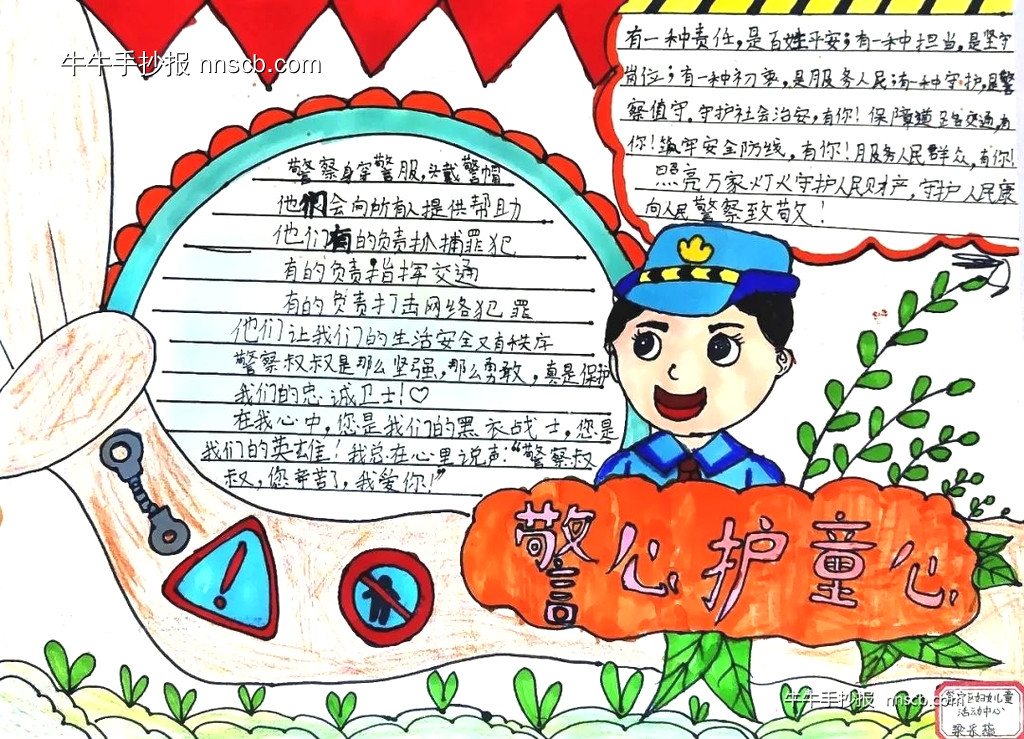 牛牛手抄报 nnscb.com
有一种责任,是百姓平安;有一种担当,是坚守
岗位;有一种初衷,是服务人民;有一种守护,是警
察值守。守护社会治安,有你!保障道路交通,有
你!筑牢安全防线,有你!服务人民群众,有你!
照亮万家灯火守护人民财产,守护人民康
向人民警察致敬!
警察身穿警服,头戴警帽
他们会向所有人提供帮助
他们有的负责抓捕罪犯
有的负责指挥交通
有的负责打击网络犯罪
他们让我们的生活安全又有秩序
警察叔叔是那么坚强,那么勇敢,真是保护
我们的忠诚卫士!♡
在我心中,您是我们的黑衣战士,您是
我们的英雄!我总在心里说声:“警察叔
叔,您辛苦了,我爱你!”
警心护童心
牛牛手抄报 nnscb.com
区妇女儿童
活动中心